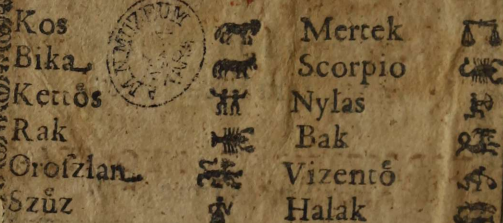 Kos
Bika
Kettős
Rak
Oroſzlan
Szűz
Mertek
Scorpio
Nylas
Bak
Vizentő
Halak
MUZEUM